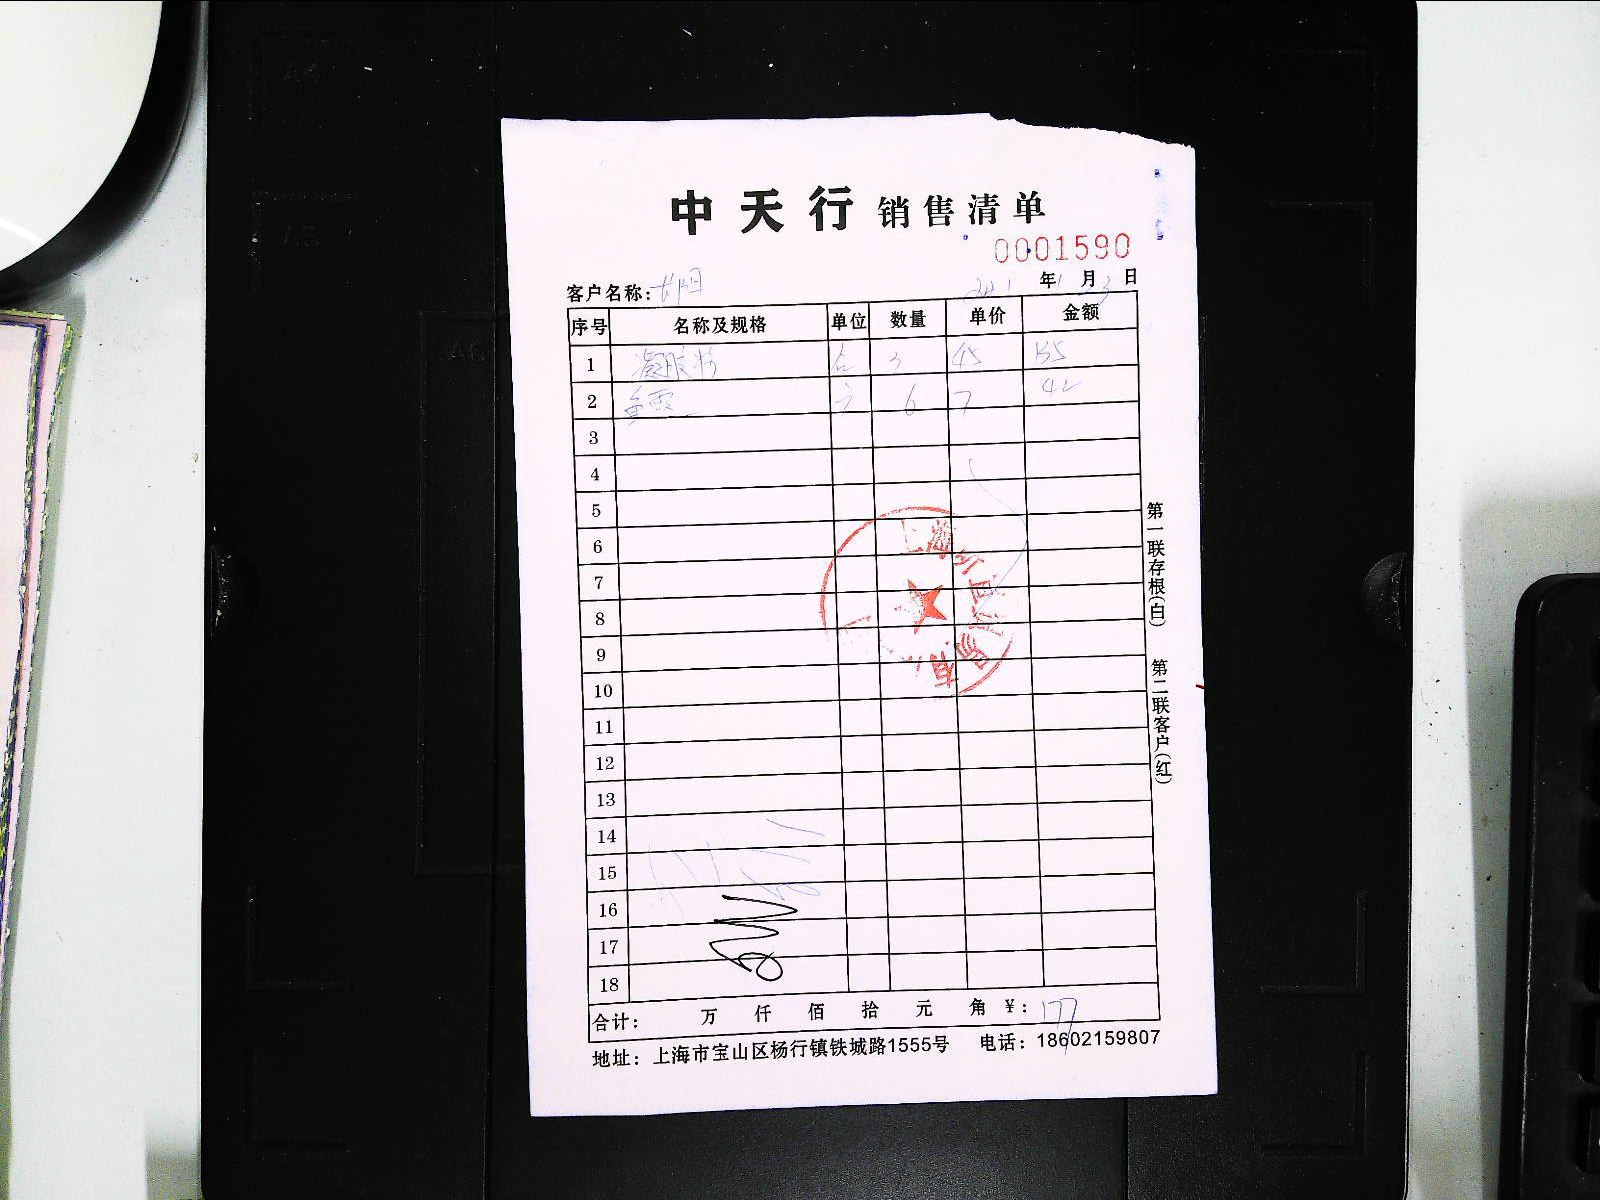 中天行 销售清单
0001590
客户名称：
年1月3日
序号 名称及规格 单位 数量 单价 金额
1 凝胶粉 3 45 135
2 6 7 42
3
4
5
6
7
8
9
10
11
12
13
14
15
16
17
18
合计： 万 仟 佰 拾 元 角 ¥：177
地址：上海市宝山区杨行镇铁城路1555号 电话：18602159807
第一联存根(白)
第二联客户(红)